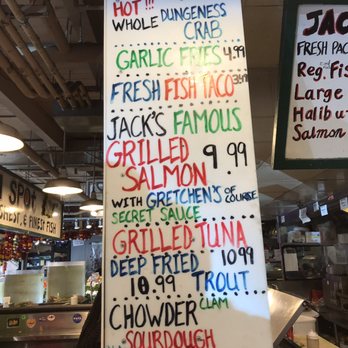 HOT !!!
WHOLE DUNGENESS
CRAB
GARLIC FRIES 4.99
FRESH FISH TACO
JACK'S FAMOUS
GRILLED
SALMON 9.99
WITH GRETCHEN'S OF COURSE
SECRET SAUCE
GRILLED TUNA
DEEP FRIED 10.99
10.99 TROUT
CHOWDER CLAM
SOURDOUGH
JAC
FRESH PAC
Reg. Fis
Large
Halibu
Salmon
SPOT
FINEST FISH